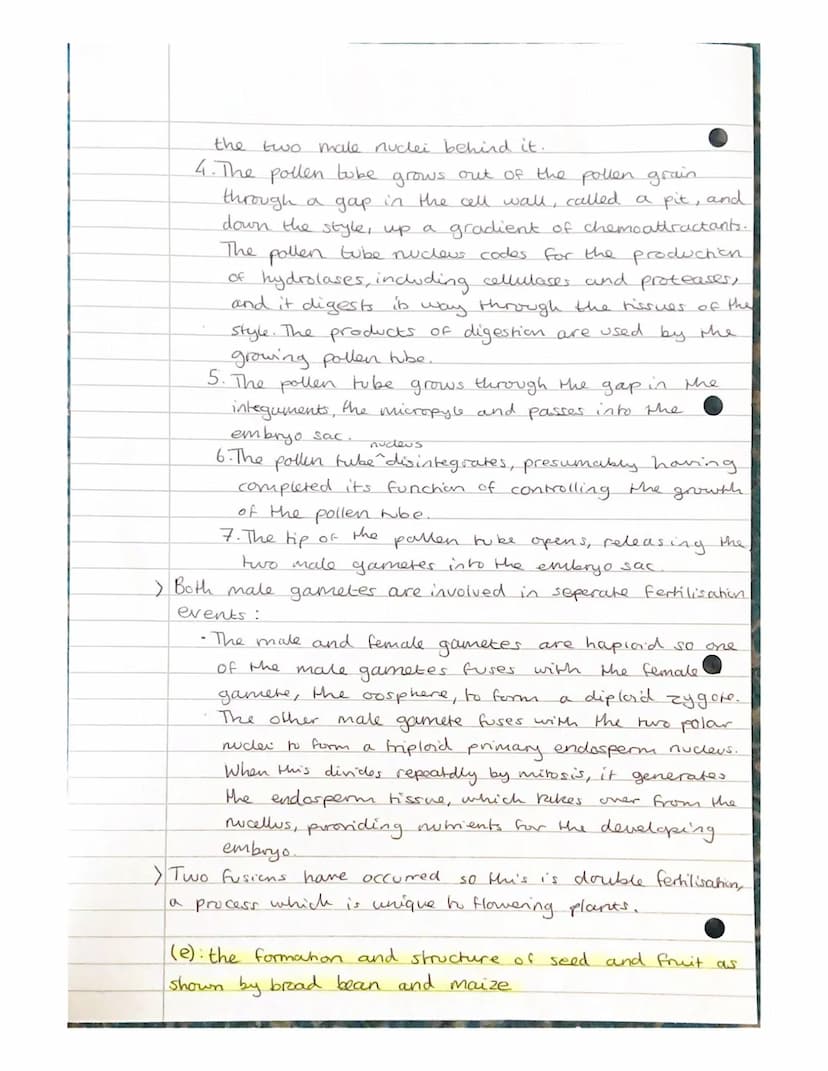 the two male nuclei behind it.
4. The pollen tube grows out of the pollen grain
through a gap in the cell wall, called a pit, and
down the style, up a gradient of chemoattractants.
The pollen tube nucleus codes for the production
of hydrolases, including cellulases and proteases,
and it digests its way through the tissues of the
style. The products of digestion are used by the
growing pollen tube.
5. The pollen tube grows through the gap in the
integuments, the micropyle and passes into the
embryo sac.
6. The pollen tube ^nucleus disintegrates, presumably having
completed its function of controlling the growth
of the pollen tube.
7. The tip of the pollen tube opens, releasing the
two male gametes into the embryo sac.
> Both male gametes are involved in seperate fertilisation
events :
· The male and female gametes are haploid so one
of the male gametes fuses with the female
gamete, the oosphere, to form a diploid zygote.
· The other male gamete fuses with the two polar
nuclei to form a triploid primary endosperm nucleus.
When this divides repeatdly by mitosis, it generates
the endosperm tissue, which takes over from the
nucellus, providing nutrients for the developing
embryo.
> Two fusions have occurred so this is double fertilisation,
a process which is unique to flowering plants.
(e): the formation and structure of seed and fruit as
shown by broad bean and maize